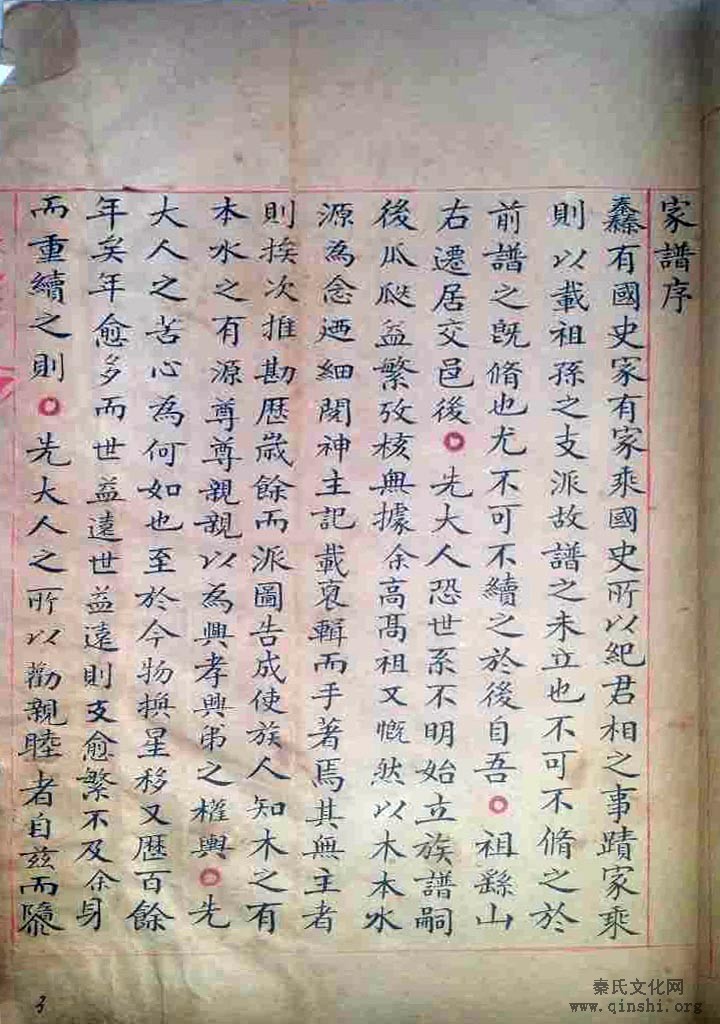 家譜序
有國史家有家乘國史所以紀君相之事蹟家乘
則以載祖孫之支派故譜之未立也不可不脩之於
前譜之旣脩也尤不可不續之於後自吾○祖繇山
右遷居交邑後○先大人恐世系不明始立族譜嗣
後瓜瓞益繁攷核無據余高髙祖又慨然以木本水
源為念迺細閱神主記載裒輯而手著焉其無主者
則挨次推勘歴歲餘而派圖告成使族人知木之有
本水之有源尊尊親親以為興孝興弟之權輿○先
大人之苦心為何如也至於今物換星移又歷百餘
年矣年愈多而世益遠世益遠則支愈繁不及余身
而重續之則○先大人之所以勸親睦者自兹而隳
3
秦氏文化网
www.qinshi.org